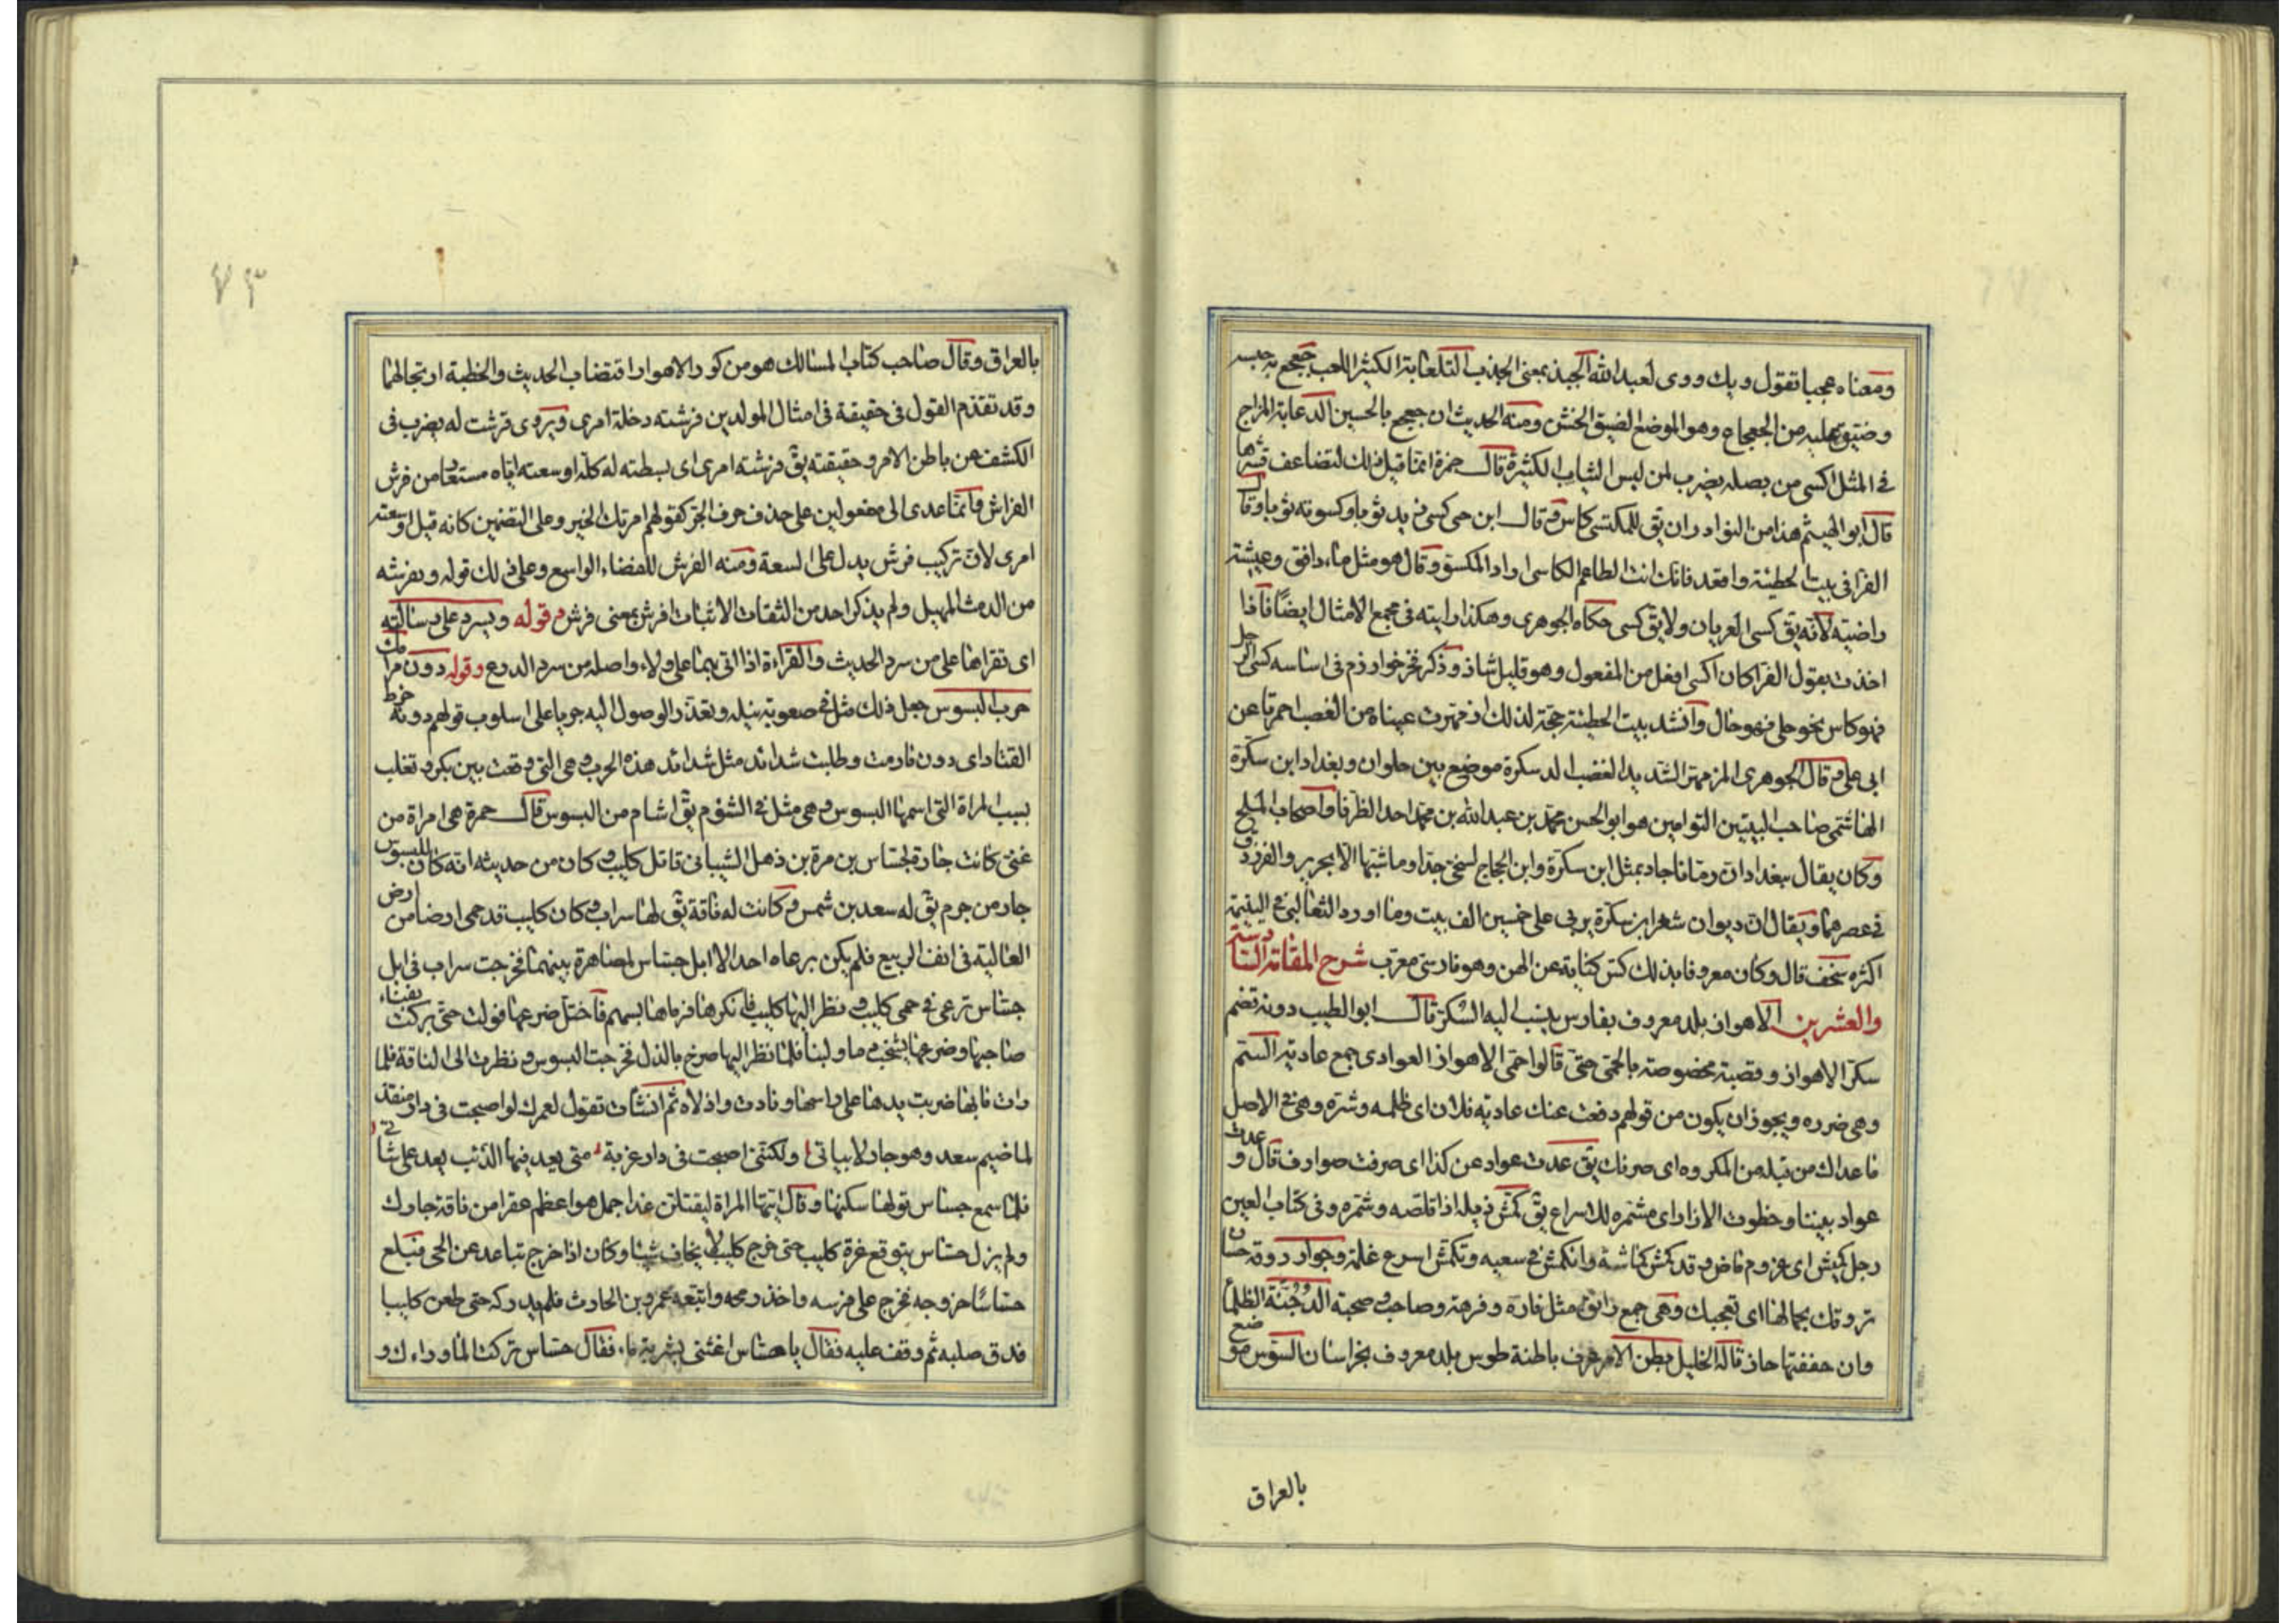 ومعناه عجبا تقول ويك ووى لعبد الله الجبذ بمعنى الجذب التلعابة الكثير اللعب جعجع به حبسه
وضيق عليه من الجعجاع وهو الموضع الضيق الخشن ومنه الحديث ان جعجع بالحسين الدعابة المزاح
فى المثل اكسى من بصله يضرب لمن لبس الثياب الكثيرة قال حمزة انما قيل ذلك لتضاعف قشرها
قال ابو الهيثم هذا من النوادر ان يق للمكتسى كاس وقال ابن جى كسى زيد ثوبا وكسوته ثوبا وقال
الفرا فى بيت الحطيئة واقعد فانك انت الطاعم الكاسى اراد المكسو وقال هو مثل ماء دافق وعيشة
راضية لانه يق كسى العريان ولا يق كسى حكاه الجوهرى وهكذا رايته فى مجمع الامثال ايضا فاذا
اخذت بقول الفرا كان اكسى افعل من المفعول وهو قليل شاذ وذكر فخر خوارزم فى اساسه كسى الرجل
فهو كاس نحو حلى فهو حال وانشد بيت الحطيئة حجة لذلك ازمهرت عيناه من الغضب احمرتا عن
ابى على وقال الجوهرى المزمهر الشديد الغضب الدسكرة موضع بين حلوان وبغداد ابن سكرة
الهاشمى صاحب البيتين التوامين هو ابو الحسن محمد بن عبد الله بن محمد احد الظرفا واصحاب الملح
وكان يقال ببغداد ان زمانا جاد بمثل ابن سكرة وابن الحجاج لسخى جدا وما شبها الا بجرير والفرزدق
فى عصرهما ويقال ان ديوان شعر ابن سكرة يربى على خمسين الف بيت وما اورد الثعالبى فى اليتيمة
اكثره سخف قال وكان معروفا بذلك كس كناية عن الهن وهو فارسى معرب شرح المقامة السادسة
والعشرين الاهواز بلد معروف بفارس ينسب اليه السكر قال ابو الطيب دونه قضم
سكر الاهواز وقصبته مخصوصة بالحمى حتى قالوا حمى الاهواز العوادى جمع عادية السم
وهى ضرره ويجوز ان يكون من قولهم دفعت عنك عادية فلان اى ظلمه وشره وهى فى الاصل
ما عداك من قبله من المكروه اى صرفك يق عدت عواد عن كذا اى صرفت صوارف قال وعدت
عواد بيننا وخطوب الازار اى مشمره للاسراع يق كمش ذيله اذا قلصه وشمره وفى كتاب العين
رجل كميش اى عزوم ماض وقد كمش كماشة وانكمش فى سعيه وتكمش اسرع غلمة وجوار روقة حسان
تروقك بجمالها اى تعجبك وهى جمع رائق مثل فاره وفرهة وصاحب وصحبة الدجنة الظلما
وان خففتها جاز قاله الخليل بطن الامر عرف باطنه طوس بلد معروف بخراسان السوس موضع
بالعراق
٧٣
بالعراق وقال صاحب كتاب المسالك هو من كور الاهواز اقتضاب الحديث والخطبة ارتجالهما
وقد تقدم القول فى حقيقة فى امثال المولدين فرشته دخلة امرى ويروى فرشت له يضرب فى
الكشف عن باطن الامر وحقيقته يق فرشته امرى اى بسطته له كله اوسعته اياه مستعار من فرش
الفراش وانما عدى الى مفعولين على حذف حرف الجر كقولهم امرتك الخير وعلى التضمين كانه قيل اوسعته
امرى لان تركيب فرش يدل على السعة ومنه الفرش للفضاء الواسع وعلى ذلك قوله ويفرشه
من الدمث المهيل ولم يذكر احد من الثقات الاثبات افرش بمعنى فرش وقوله ويسرد على رسالته
اى تقراها على من سرد الحديث والقراءة اذا اتى بهما على ولاء واصله من سرد الدرع وقوله دون مرامك
حرب البسوس جعل ذلك مثل فى صعوبة نيله وتعذر الوصول اليه جريا على اسلوب قولهم دونه خرط
القتاد اى دون ما رمت وطلبت شدائد مثل شدائد هذه الحرب وهى التى وقعت بين بكر وتغلب
بسبب المراة التى اسمها البسوس وهى مثل فى الشوم يق اشام من البسوس قال حمزة هى امراة من
غنى كانت جارة لجساس بن مرة بن ذهل الشيبانى قاتل كليب وكان من حديثه انه كان للبسوس
جار من جرم يق له سعد بن شمس وكانت له ناقة يق لها سراب وكان كليب قد حمى ارضا من ارض
العالية فى انف الربيع فلم يكن يرعاه احد الا ابل جساس لمصاهرة بينهما فخرجت سراب فى ابل
جساس ترعى فى حمى كليب ونظر اليها كليب فانكرها فرماها بسهم فاختل ضرعها فولت حتى بركت بفناء
صاحبها وضرعها يشخب دما ولبنا فلما نظر اليها صرخ بالذل فخرجت البسوس ونظرت الى الناقة فلما
رات ما بها ضربت يدها على راسها ونادت واذلاه ثم انشات تقول لعمرك لو اصبحت فى دار منقذ
لما ضيم سعد وهو جار لابياتى ولكننى اصبحت فى دار غربة متى يعد فيها الذئب يعد على شاتى
فلما سمع جساس قولها سكنها وقال ايتها المراة ليقتلن غدا جمل هو اعظم عقرا من ناقة جارك
ولم يزل جساس يتوقع غرة كليب حتى خرج كليب لا يخاف شيئا وكان اذا خرج تباعد عن الحى فبلغ
جساسا خروجه فخرج على فرسه واخذ رمحه واتبعه عمرو بن الحارث فلم يدركه حتى طعن كليبا
فدق صلبه ثم وقف عليه فقال يا جساس اغثنى بشربة ماء فقال جساس تركت الما وراءك و